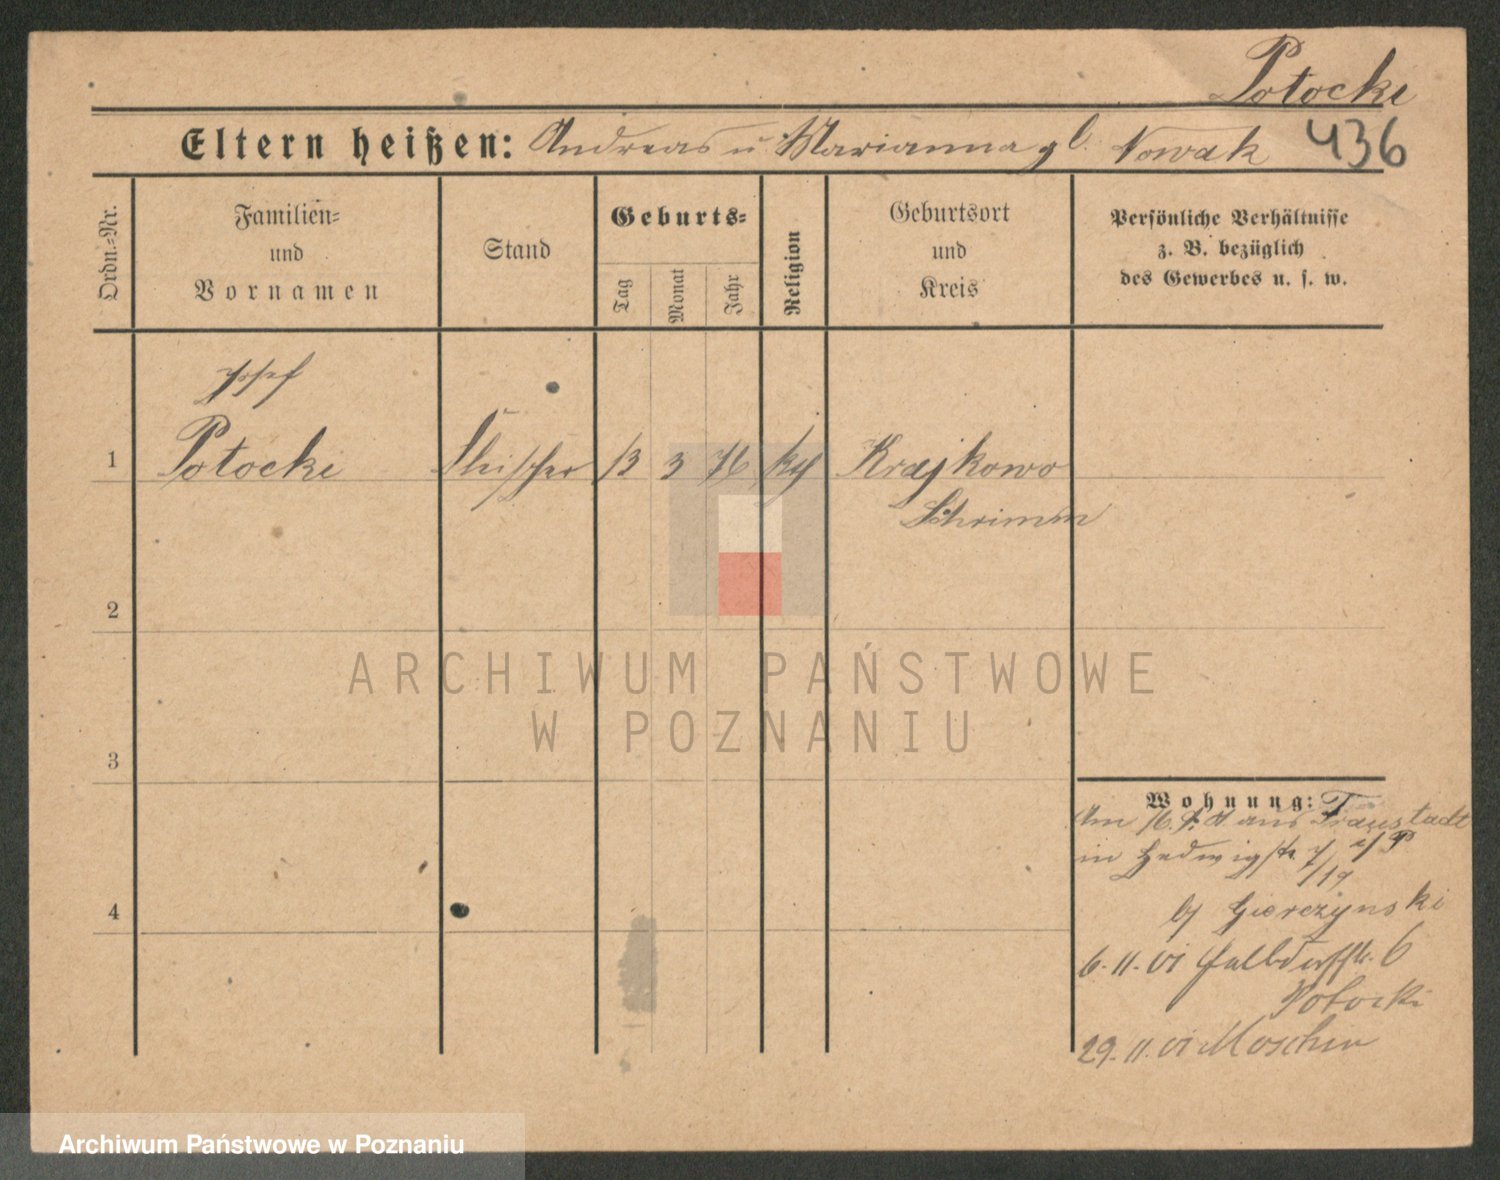 Potocki
Eltern heißen: Andreas u Marianna gb. Nowak 436
Ordn.-Nr.
Familien-
und
Vornamen
Stand
Geburts-
Tag
Monat
Jahr
Religion
Geburtsort
und
Kreis
Persönliche Verhältnisse
z. B. bezüglich
des Gewerbes u. s. w.
Josef
1 Potocki 13 3 76 kth Krajkowo
Schrimm
2
3
4
Wohnung:
Am 16. aus Fraustadt
in Hedwigstr.
by Gierczynski
6. 11. 01 6
Potocki
29. 11. 01 Moschin
ARCHIWUM PAŃSTWOWE
W POZNANIU
Archiwum Państwowe w Poznaniu